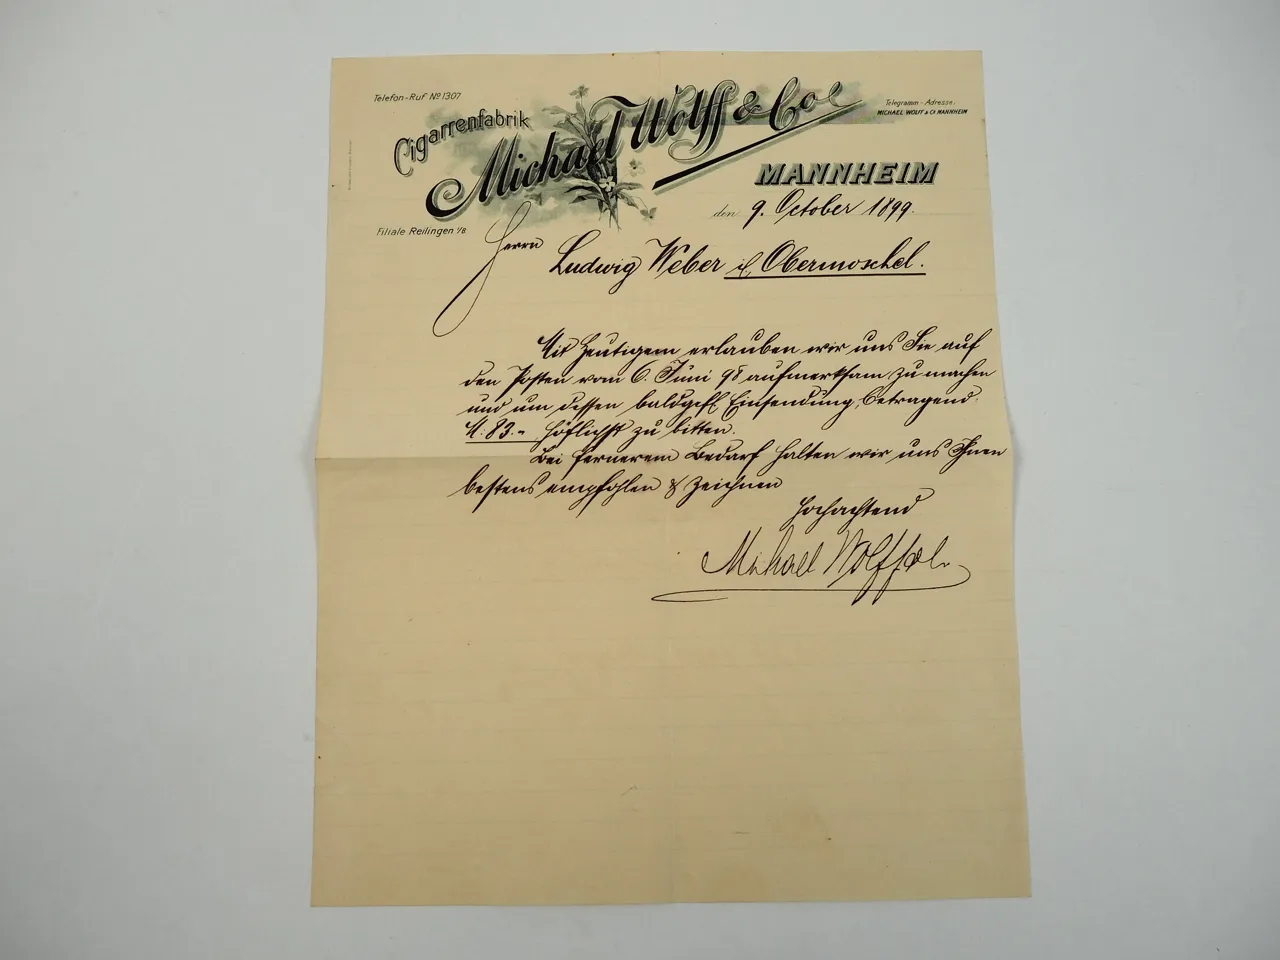 Telefon-Ruf No 1307
Cigarrenfabrik
Michael Wolff & Co.
Telegramm-Adresse:
MICHAEL WOLFF & Co. MANNHEIM
MANNHEIM
Filiale Reilingen i/B
den 9. October 1899.
Herrn
Ludwig Weber i/ Obermoschel.
Mit Heutigem erlauben wir uns Sie auf
den Posten vom 6. Juni 98 aufmerksam zu machen
und um dessen baldgefl. Einsendung, betragend
M. 83.- höflichst zu bitten.
Bei fernerem Bedarf halten wir uns Ihnen
bestens empfohlen & zeichnen
Hochachtend
Michael Wolff & Co.